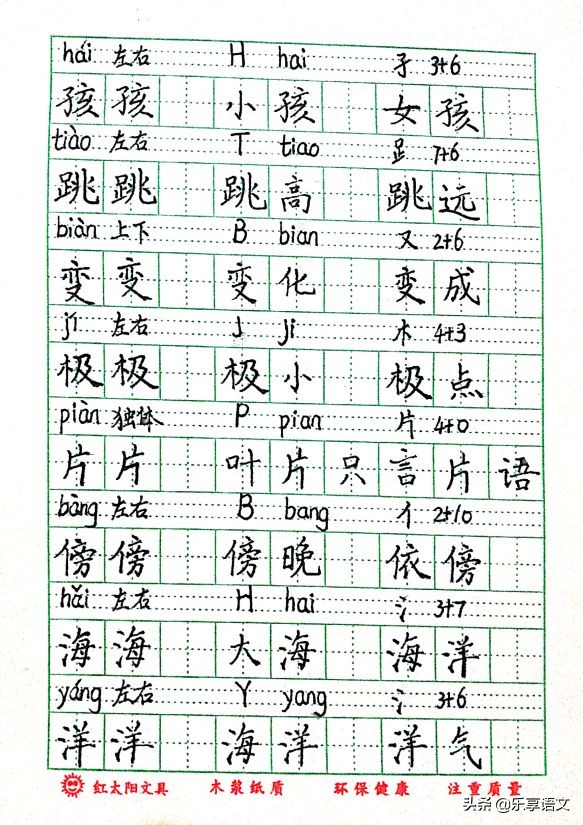 hái 左右 H hai 孑 3+6
孩 孩 小 孩 女 孩
tiào 左右 T tiao 𧾷 7+6
跳 跳 跳 高 跳 远
biàn 上下 B bian 又 2+6
变 变 变 化 变 成
jí 左右 J ji 木 4+3
极 极 极 小 极 点
piàn 独体 P pian 片 4+0
片 片 叶 片 只 言 片 语
bàng 左右 B bang 亻 2+10
傍 傍 傍 晚 依 傍
hǎi 左右 H hai 氵 3+7
海 海 大 海 海 洋
yáng 左右 Y yang 氵 3+6
洋 洋 海 洋 洋 气
红太阳文具 木浆纸质 环保健康 注重质量
头条@乐享语文